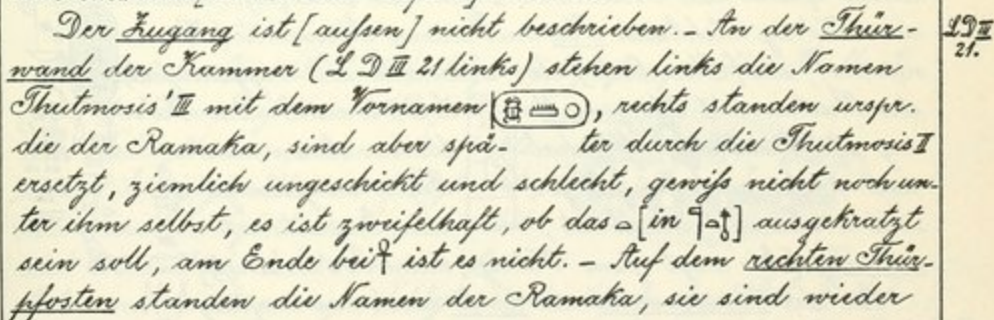 Der Zugang ist [aufsen] nicht beschrieben. – An der Thür-
wand der Kammer (LD III 21 links) stehen links die Namen
Thutmosis' III mit dem Vornamen (𓆣𓏠𓇳), rechts standen urspr.
die der Ramaka, sind aber spä- ter durch die Thutmosis II
ersetzt, ziemlich ungeschickt und schlecht, gewiſs nicht noch un-
ter ihm selbst, es ist zweifelhaft, ob das 𓏏 [in 𓊹𓏏𓄤] ausgekratzt
sein soll, am Ende bei 𓋹 ist es nicht. – Auf dem rechten Thür-
pfosten standen die Namen der Ramaka, sie sind wieder
LD III
21.